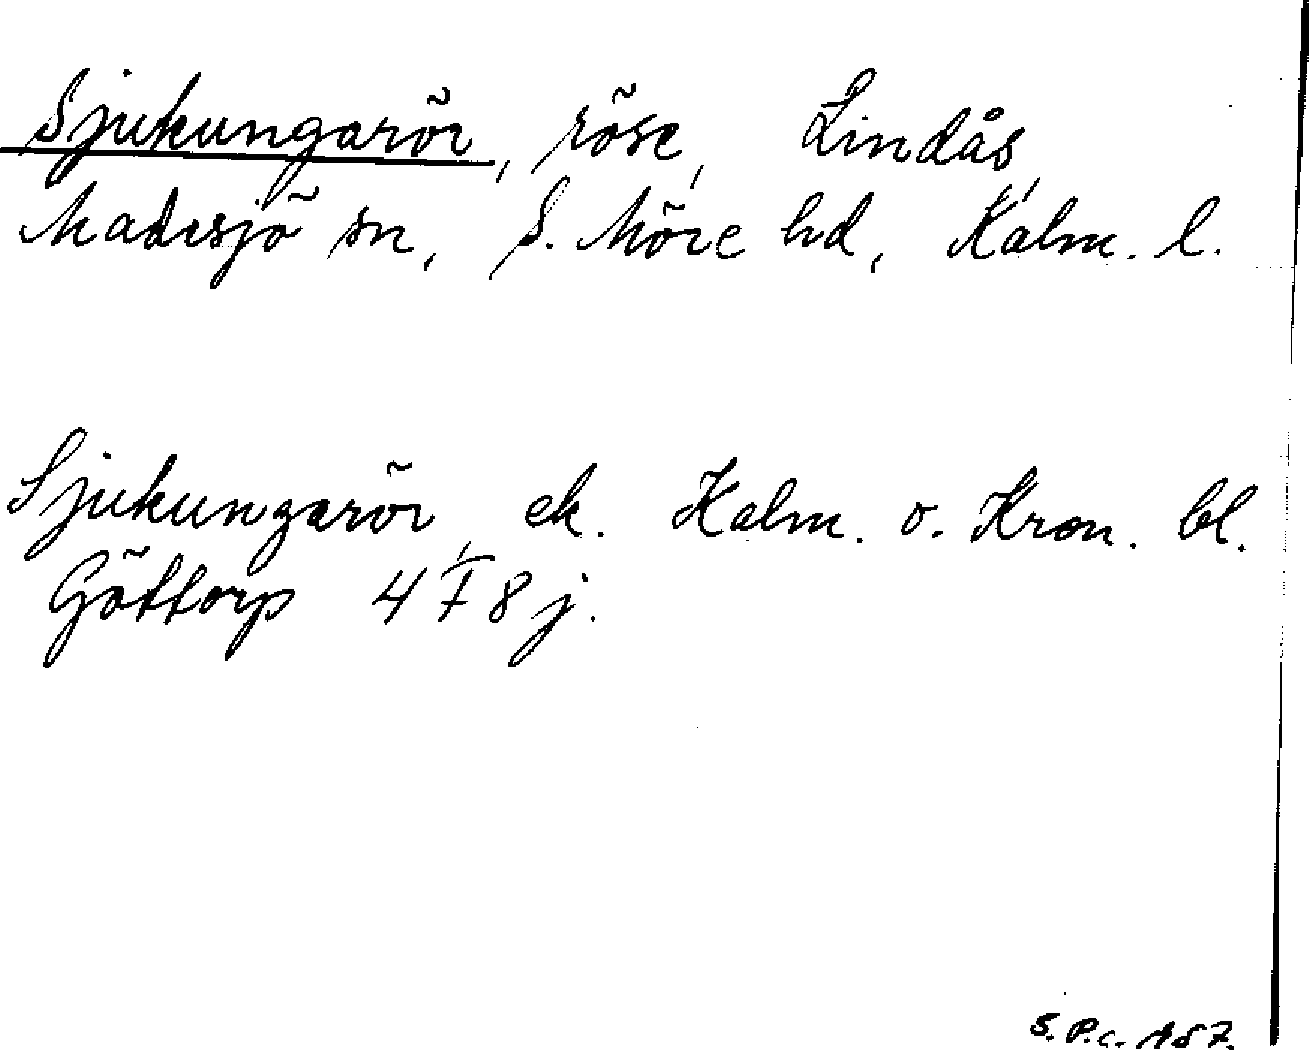 Sjukungarör, röse, Lindås,
Madesjö sn, S. Möre hd, Kalm. l.
Sjukungarör, ek. Kalm. o. Kron. bl.
Göttorp 4 F 8 j.
S. P.c. 1957.